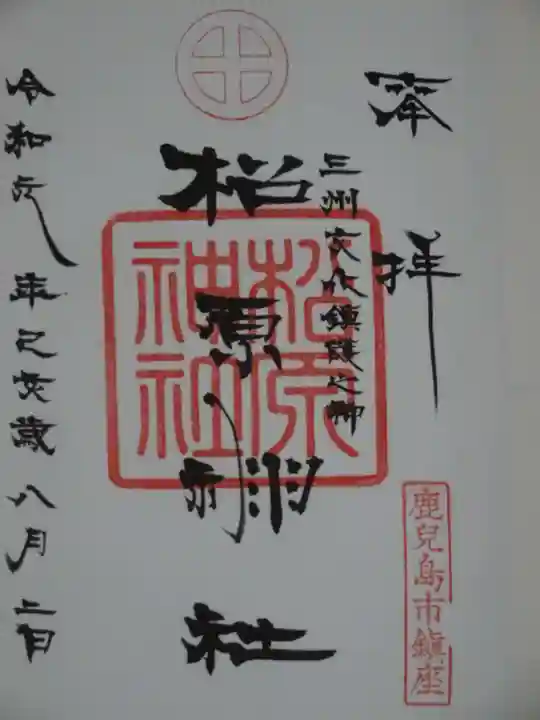 奉拝
三州文化鎮護之神
松原神社
松原神社
令和元年己亥歳八月二日
鹿兒島市鎮座